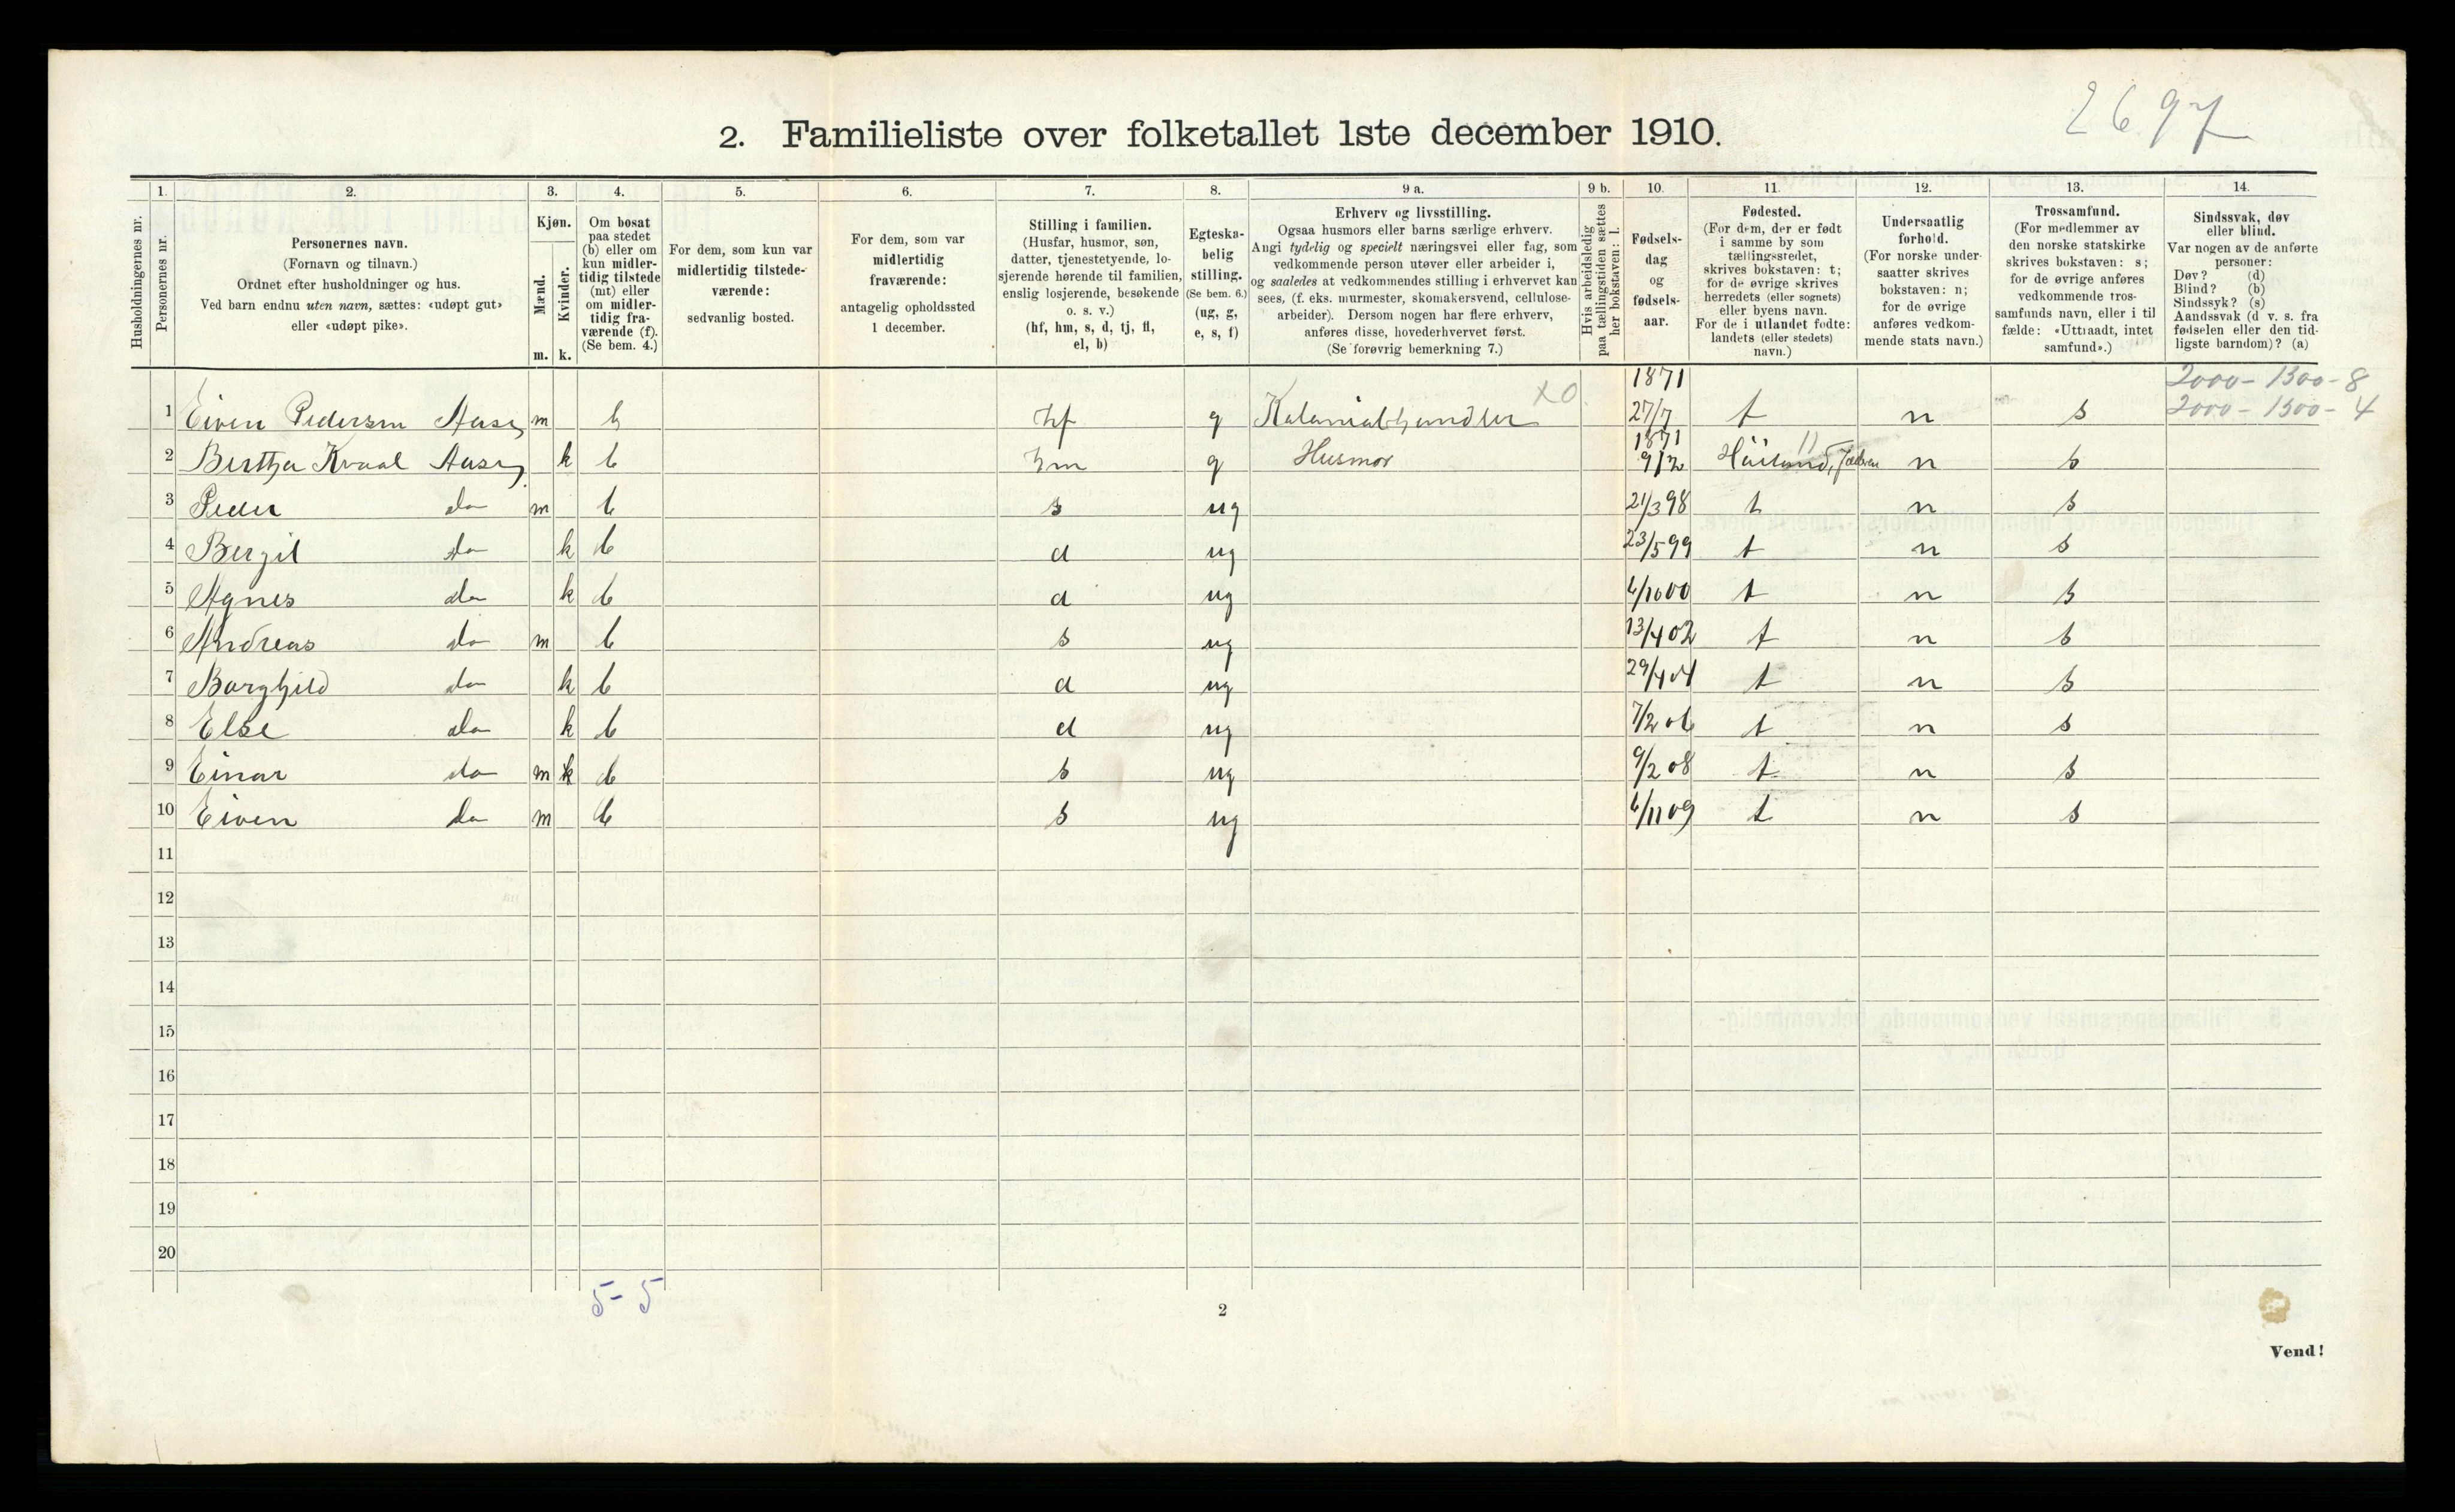 2697
2. Familieliste over folketallet 1ste december 1910.
1. 2. 3. 4. 5. 6. 7. 8. 9 a. 9 b. 10. 11. 12. 13. 14.
Husholdningernes nr.
Personernes nr.
Personernes navn.
(Fornavn og tilnavn.)
Ordnet efter husholdninger og hus.
Ved barn endnu uten navn, sættes: «udøpt gut»
eller «udøpt pike».
Kjøn.
Mænd.
Kvinder.
m. k.
Om bosat
paa stedet
(b) eller om
kun midler-
tidig tilstede
(mt) eller
om midler-
tidig fra-
værende (f).
(Se bem. 4.)
For dem, som kun var
midlertidig tilstede-
værende:
sedvanlig bosted.
For dem, som var
midlertidig
fraværende:
antagelig opholdssted
1 december.
Stilling i familien.
(Husfar, husmor, søn,
datter, tjenestetyende, lo-
sjerende hørende til familien,
enslig losjerende, besøkende
o. s. v.)
(hf, hm, s, d, tj, fl,
el, b)
Egteska-
belig
stilling.
(Se bem. 6.)
(ug, g,
e, s, f)
Erhverv og livsstilling.
Ogsaa husmors eller barns særlige erhverv.
Angi tydelig og specielt næringsvei eller fag, som
vedkommende person utøver eller arbeider i,
og saaledes at vedkommendes stilling i erhvervet kan
sees, (f. eks. murmester, skomakersvend, cellulose-
arbeider). Dersom nogen har flere erhverv,
anføres disse, hovederhvervet først.
(Se forøvrig bemerkning 7.)
Hvis arbeidsledig
paa tællingstiden sættes
her bokstaven: l.
Fødsels-
dag
og
fødsels-
aar.
Fødested.
(For dem, der er født
i samme by som
tællingsstedet,
skrives bokstaven: t;
for de øvrige skrives
herredets (eller sognets)
eller byens navn.
For de i utlandet fødte:
landets (eller stedets)
navn.)
Undersaatlig
forhold.
(For norske under-
saatter skrives
bokstaven: n;
for de øvrige
anføres vedkom-
mende stats navn.)
Trossamfund.
(For medlemmer av
den norske statskirke
skrives bokstaven: s;
for de øvrige anføres
vedkommende tros-
samfunds navn, eller i til
fælde: «Uttraadt, intet
samfund».)
Sindssvak, døv
eller blind.
Var nogen av de anførte
personer:
Døv? (d)
Blind? (b)
Sindssyk? (s)
Aandssvak (d v. s. fra
fødselen eller den tid-
ligste barndom)? (a)
2000 - 1300 - 8
1 Eiven Pedersen Aase m b hf g Kolonialhandler X0 1871 27/7 t n s 2000 - 1300 - 4
2 Bertha Kvaal Aase k b hm g Husmor 1871 9/2 Høiland, Jæderen 11 n s
3 Peder do m b s ug 21/3 98 t n s
4 Bergit do k b d ug 23/5 99 t n s
5 Agnes do k b d ug 6/10 00 t n s
6 Andreas do m b s ug 13/4 02 t n s
7 Borghild do k b d ug 29/4 04 t n s
8 Else do k b d ug 7/2 06 t n s
9 Einar do m k b s ug 9/2 08 t n s
10 Eiven do m b s ug 6/11 09 t n s
11
12
13
14
15
16
17
18
19
20
5 - 5
2
Vend!